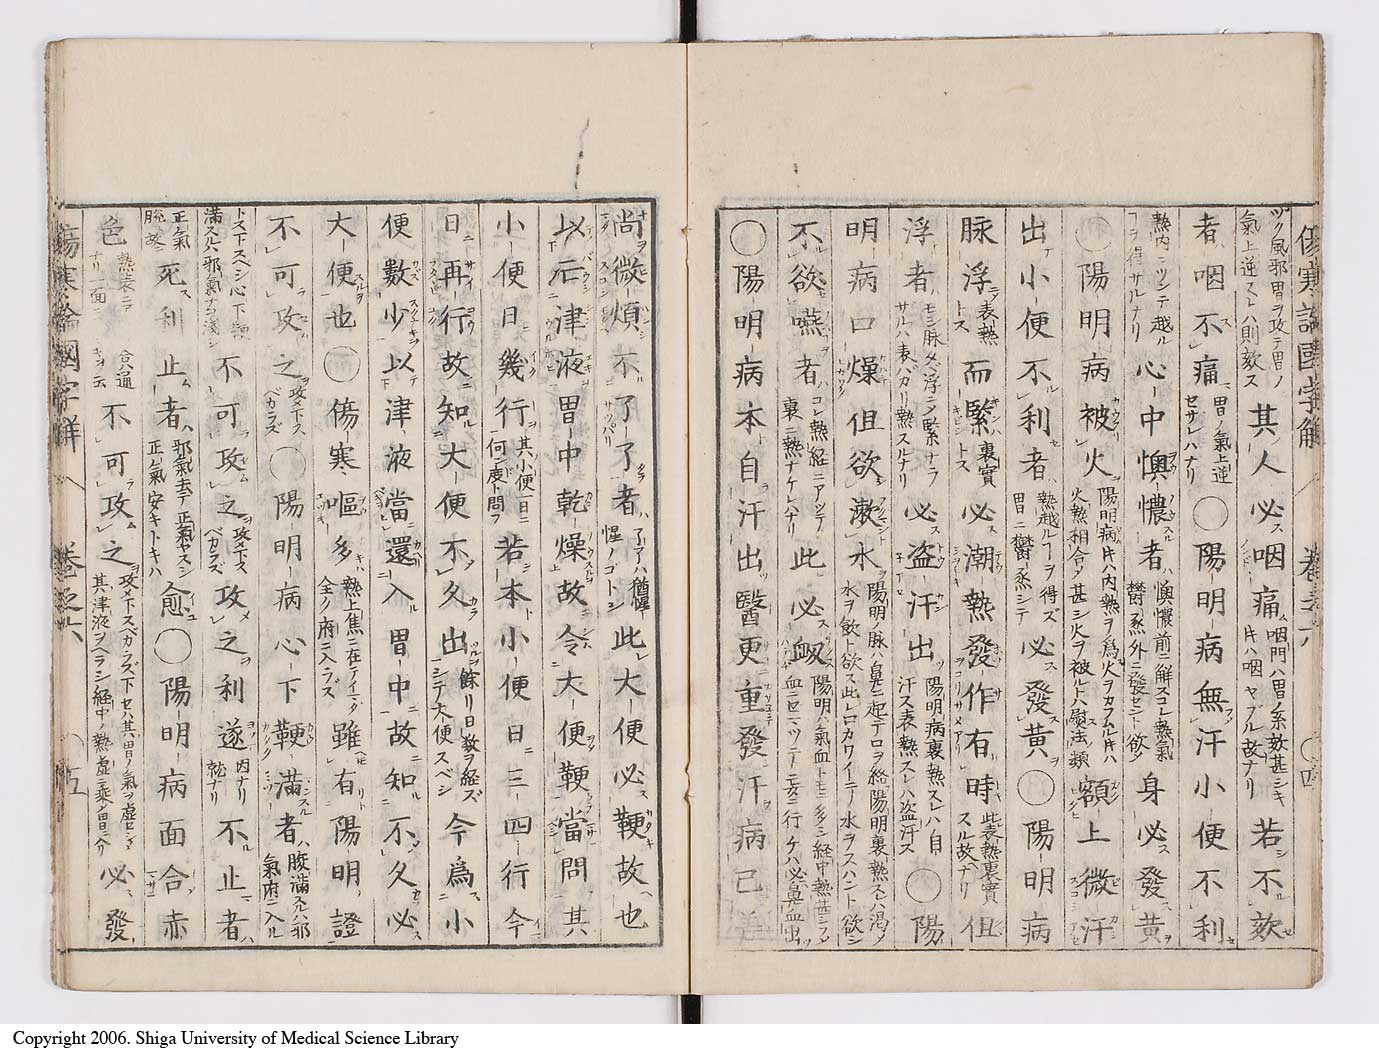 傷寒論國字解 巻之六 〇四
ツク風邪胃ヲ攻テ胃ノ氣上逆スレハ則欬ス 其人必咽痛 咽門ハ胃ノ系欬甚シキ片ハ咽ヤブル故ナリ 若不欬
者咽不痛 胃ノ氣上逆セサレハナリ 〇陽明病無汗小便不利
熱内ニツシテ越ルヿヲ得サルナリ 心中懊憹者 懊憹前ニ解スコレ熱氣鬱蒸外ニ發セント欲ノ 身必發黄
〇陽明病被火 陽明病片ハ内熱ヲ爲火ヲカフムル片ハ火熱相合ノ甚シ火ヲ被ルトハ慰法ノ類 額上微汗
出小便不利者 熱越ルヿヲ得ズ胃ニ鬱蒸シテ 必發黄〇陽明病
脉浮 表熱トス 而緊 裏實トス 必潮熱發作有時 此表熱裏實スル故ナリ 但
浮者 モシ脉タヾ浮ニノ緊ナラサルハ表バカリ熱スルナリ 必盗汗出 陽明病裏熱スレハ自汗ス表熱スレハ盗汗ス 〇陽
明病口燥但欲漱水 陽明ノ脉ハ鼻ニ起テ口ヲ絡陽明裏熱スレハ渇ノ水ヲ飲ト欲ス此レ口カワイニノ水ヲスハント欲シ
不欲嚥者 コレ熱経ニアツテ裏ニ熱ナケレハナリ 此必衂 陽明ハ氣血トモニ多シ経中熱甚シフノ血ニセマツテ行ケハ必鼻血出
〇陽明病本自汗出醫更重發汗病已差
尚微煩不了了者 了了ハ猶惺惺ノゴトシ 此大便必鞕故也
以亡津液胃中乾燥故令大便鞕當問其
小便日幾行 其小便一日ニ何度ト問フ 若本小便日三四行今
日再行故知大便不久出 餘リ日数ヲ経ズシテ大便スベシ 今爲小
便數少以津液當還入胃中故知不久必
大便也〇傷寒嘔多 熱上焦ニ在アイダ全ク府ニ入ラズ 雖有陽明證
不可攻之 攻メ下スベカラズ 〇陽明病心下鞕滿者 腹滿スルハ邪氣府ニ入ル
トス下スベシ心下鞕滿スルハ邪氣ナヲ浅シ 不可攻之 攻メ下スベカラズ 攻之利遂 因ナリ就ナリ 不止者
正氣脱ス故ニ 死利止者 邪氣去テ正氣ヤスシ正氣安キトキハ 愈〇陽明病面合赤
色 熱表ニアリ面ニ 合ハ通キヲ云 不可攻之 攻メ下スベカラズ下セハ其胃ノ氣ヲ虚セシメ其津液ヲヘラシ経中ノ熱虚ニ乘ノ胃ニ入リ 必發
傷寒論國字解 巻之六 〇五
Copyright 2006. Shiga University of Medical Science Library